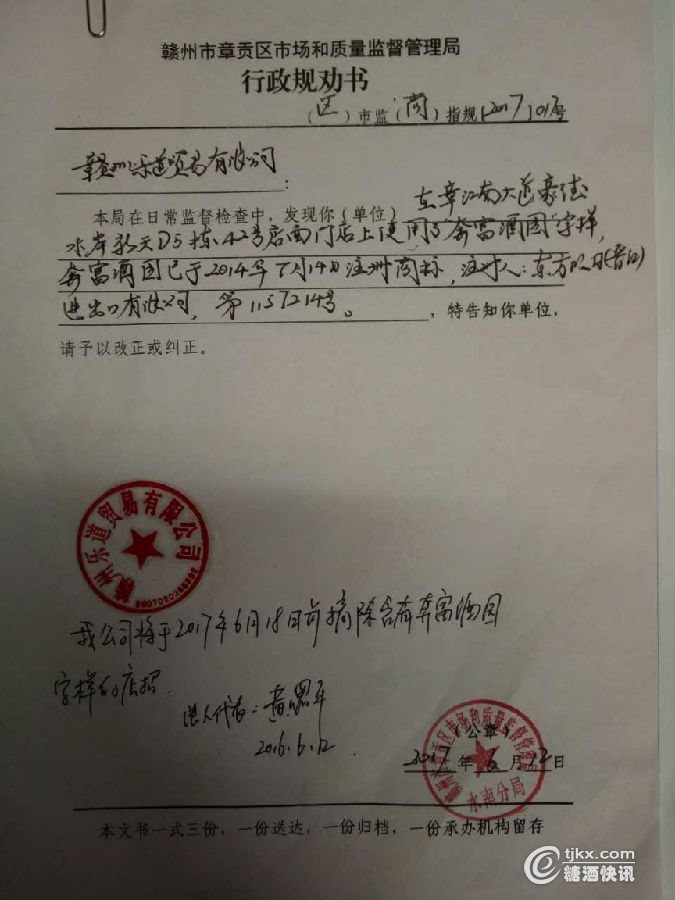 赣州市章贡区市场和质量监督管理局
行政规劝书
（区）市监（商）指规[2017]012号
赣州乐道贸易有限公司：
本局在日常监督检查中，发现你（单位）在章江南大道豪德
水岸新天D5栋42号店面门店上使用了"奔富酒园"字样，
奔富酒园已于2014年7月14日注册商标，注册人：东方
进出口有限公司，第1157214号。，特告知你单位，
请予以改正或纠正。
赣州乐道贸易有限公司
我公司将于2017年6月18日前摘除含有奔富酒园
字样的店招.
法人代表：黄
2016.6.12
（公章）
2017年6月12日
水南分局
本文书一式三份，一份送达，一份归档，一份承办机构留存
tjkx.com
糖酒快讯